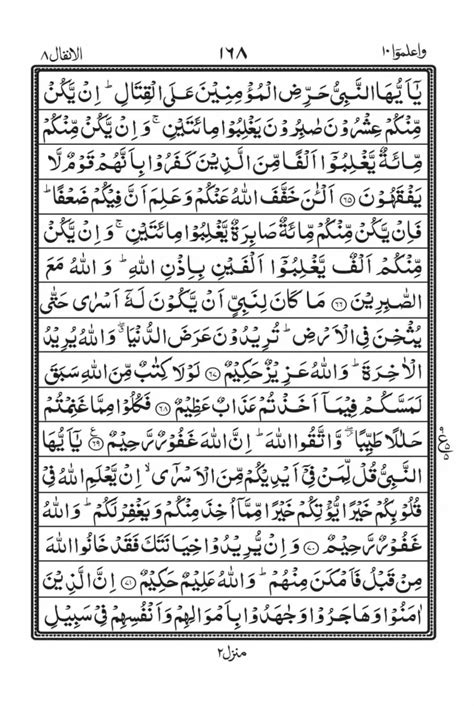 واعلموٓا ١٠ ١٦٨ الانفال ٨
يٰٓاَيُّهَا النَّبِيُّ حَرِّضِ الْمُؤْمِنِيْنَ عَلَى الْقِتَالِ ؕ اِنْ يَّكُنْ
مِّنْكُمْ عِشْرُوْنَ صٰبِرُوْنَ يَغْلِبُوْا مِائَتَيْنِ ۚ وَاِنْ يَّكُنْ مِّنْكُمْ
مِّائَةٌ يَّغْلِبُوْٓا اَلْفًا مِّنَ الَّذِيْنَ كَفَرُوْا بِاَنَّهُمْ قَوْمٌ لَّا
يَفْقَهُوْنَ ﴿۶۵﴾ اَلْـٰٔنَ خَفَّفَ اللهُ عَنْكُمْ وَعَلِمَ اَنَّ فِيْكُمْ ضَعْفًا ؕ
فَاِنْ يَّكُنْ مِّنْكُمْ مِّائَةٌ صَابِرَةٌ يَّغْلِبُوْا مِائَتَيْنِ ۚ وَاِنْ يَّكُنْ
مِّنْكُمْ اَلْفٌ يَّغْلِبُوْٓا اَلْفَيْنِ بِاِذْنِ اللهِ ؕ وَاللهُ مَعَ
الصّٰبِرِيْنَ ﴿۶۶﴾ مَا كَانَ لِنَبِيٍّ اَنْ يَّكُوْنَ لَهٗٓ اَسْرٰى حَتّٰى
يُثْخِنَ فِي الْاَرْضِ ؕ تُرِيْدُوْنَ عَرَضَ الدُّنْيَا ۖ وَاللهُ يُرِيْدُ
الْاٰخِرَةَ ؕ وَاللهُ عَزِيْزٌ حَكِيْمٌ ﴿۶۷﴾ لَوْلَا كِتٰبٌ مِّنَ اللهِ سَبَقَ
لَمَسَّكُمْ فِيْمَآ اَخَذْتُمْ عَذَابٌ عَظِيْمٌ ﴿۶۸﴾ فَكُلُوْا مِمَّا غَنِمْتُمْ
حَلٰلًا طَيِّبًا ۖ وَّاتَّقُوا اللهَ ؕ اِنَّ اللهَ غَفُوْرٌ رَّحِيْمٌ ﴿۶۹﴾ يٰٓاَيُّهَا
النَّبِيُّ قُلْ لِّمَنْ فِيْٓ اَيْدِيْكُمْ مِّنَ الْاَسْرٰٓى ۙ اِنْ يَّعْلَمِ اللهُ فِيْ
قُلُوْبِكُمْ خَيْرًا يُّؤْتِكُمْ خَيْرًا مِّمَّآ اُخِذَ مِنْكُمْ وَيَغْفِرْ لَكُمْ ؕ وَاللهُ
غَفُوْرٌ رَّحِيْمٌ ﴿۷۰﴾ وَاِنْ يُّرِيْدُوْا خِيَانَتَكَ فَقَدْ خَانُوا اللهَ
مِنْ قَبْلُ فَاَمْكَنَ مِنْهُمْ ؕ وَاللهُ عَلِيْمٌ حَكِيْمٌ ﴿۷۱﴾ اِنَّ الَّذِيْنَ
اٰمَنُوْا وَهَاجَرُوْا وَجٰهَدُوْا بِاَمْوَالِهِمْ وَاَنْفُسِهِمْ فِيْ سَبِيْلِ
منزل ٢